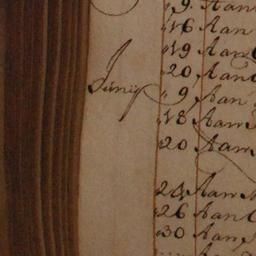 9. Aan
16 Aan
19 Aan
20 Aan
Junij 9 Aan
18 Aan
20 Aan
24 Aan
26 Aan
30 Aan